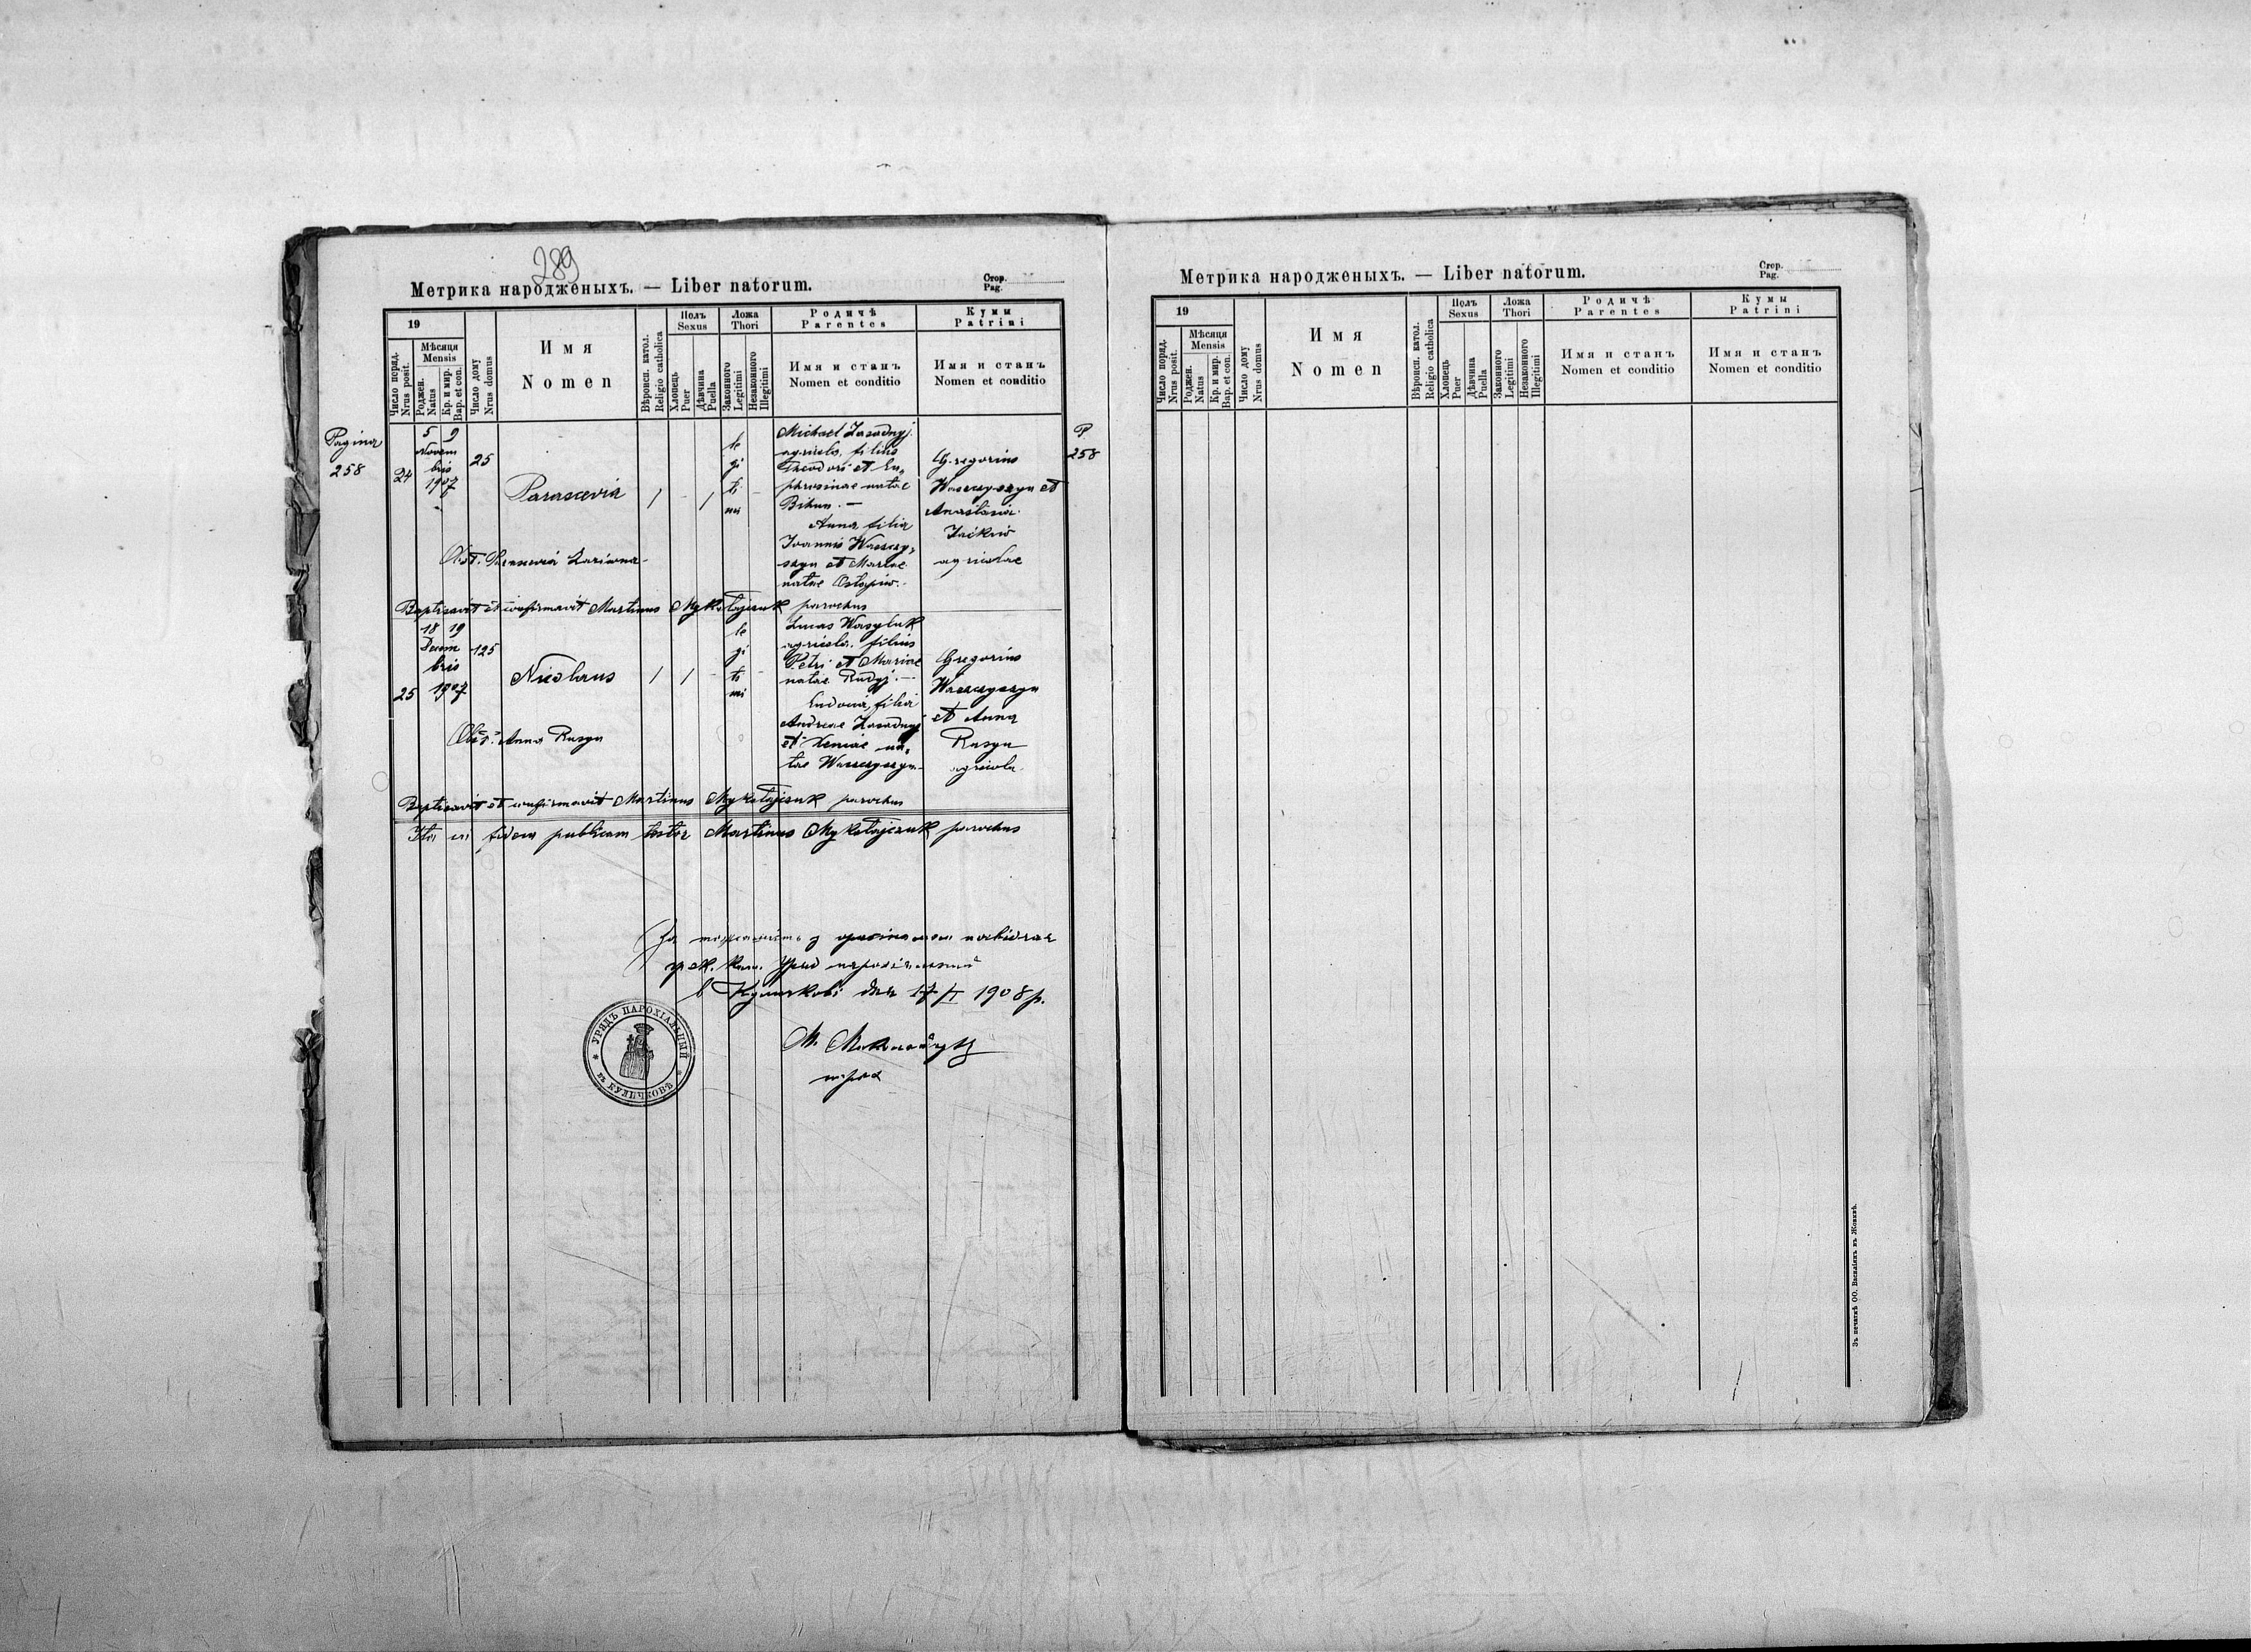 289
Метрика народженыхъ. — Liber natorum.
Стор.
Pag.
19
Число поряд.
Nrus posit.
Мѣсяця
Mensis
Роджен.
Natus
Кр. и мир.
Bap. et con.
Число дому
Nrus domus
Имя
Nomen
Вѣроисп. катол.
Religio catholica
Полъ
Sexus
Хлопець
Puer
Дѣвчина
Puella
Ложа
Thori
Законного
Legitimi
Незаконного
Illegitimi
Родичѣ
Parentes
Имя и станъ
Nomen et conditio
Кумы
Patrini
Имя и станъ
Nomen et conditio
Pagina
258
24
5 9
Novem
bris
1907
25
Parascevia
/ - / -
le
gi
ti
mi
Michael Zasadnyj
agricola, filius
Theodori et Eu„
phrosinae natae
Bihun. —
Anna filia
Joannis Waszczy„
szyn et Mariae
natae Ostapiw.
Gregorius
Waszczyszyn et
Anastasia
Jackiw
agricolae
P
258
Obst. Parascevia Lariwna
Baptisavit et confirmavit Martinus Mykołajczuk parochus
25
18 19
Decem
bris
1907
125
Nicolaus
/ / - -
le
gi
ti
mi
Lucas Wasyluk
agricola, filius
Petri et Mariae
natae Rudyj. —
Eudocia, filia
Andreae Zasadnyj
et Xeniae na„
tae Waszczyszyn.
Gregorius
Waszczyszyn
et Anna
Rusyn
agricola
Obst. Anna Rusyn
Baptisavit et confirmavit Martinus Mykołajczuk parochus
Ita in fidem publicam testor Martinus Mykołajczuk parochus
За
гр. к. кат. Уряд парохіяльний
в дня 17/I 1908 р.
УРЯДЪ ПАРОХІАЛЬНЫЙ
въ КУЛИЧКОВѢ
М.
парох
Метрика народженыхъ. — Liber natorum.
Стор.
Pag.
19
Число поряд.
Nrus posit.
Мѣсяця
Mensis
Роджен.
Natus
Кр. и мир.
Bap. et con.
Число дому
Nrus domus
Имя
Nomen
Вѣроисп. катол.
Religio catholica
Полъ
Sexus
Хлопець
Puer
Дѣвчина
Puella
Ложа
Thori
Законного
Legitimi
Незаконного
Illegitimi
Родичѣ
Parentes
Имя и станъ
Nomen et conditio
Кумы
Patrini
Имя и станъ
Nomen et conditio
Зъ печатнѣ ОО. Василіянъ въ Жовквѣ.